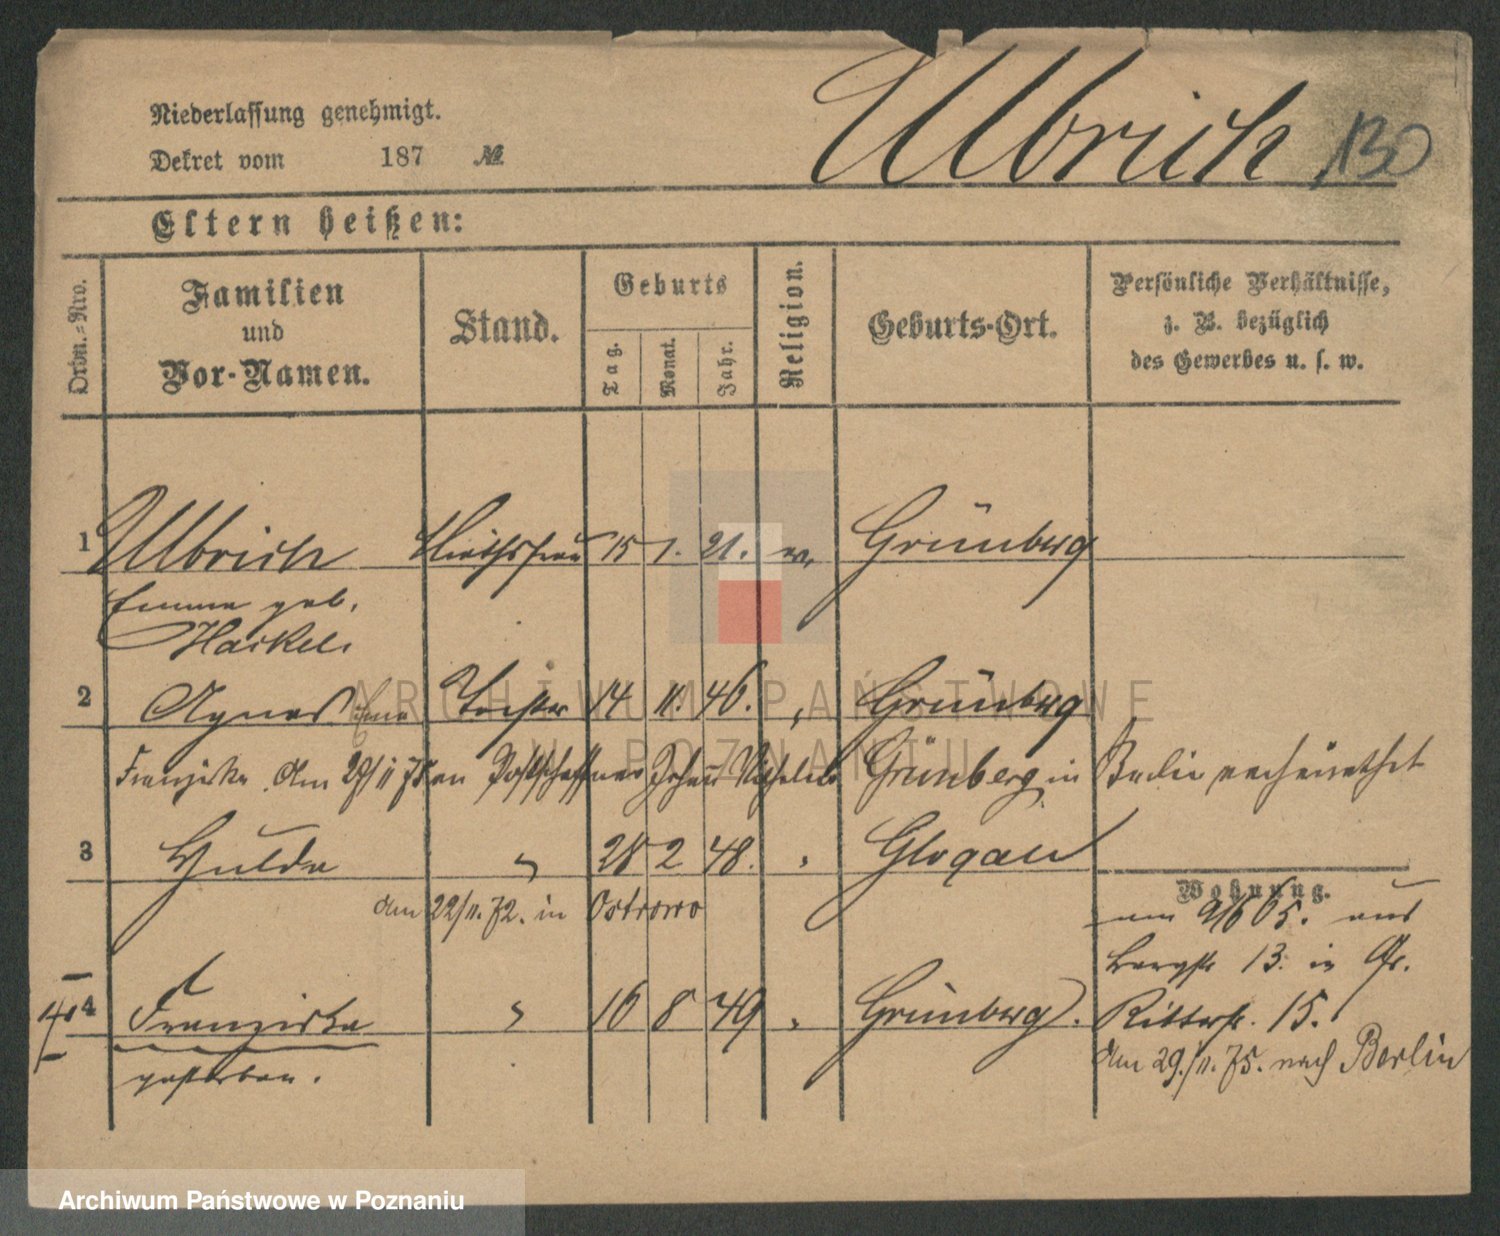 Niederlassung genehmigt.
Dekret vom 187 №
Ulbrich 130
Eltern heißen:
Ordn.=Nro.
Familien
und
Vor-Namen.
Stand.
Geburts
Tag.
Monat.
Jahr.
Religion.
Geburts-Ort.
Persönliche Verhältnisse,
z. B. bezüglich
des Gewerbes u. s. w.
1 Ulbrich 15 1. 21. ev. Grünberg
Emma geb.
Hackel.
2 Agnes Tochter 14 11. 46. " Grünberg
Franziska. Am 29/11 75 an Postschaffner Johann Wilhelm Grünberg in Berlin verheirathet
3 Hulda " 28 2 48. " Glogau
am 22/11. 72. in Ostrowo
Wohnung.
65. aus
Bergstr 13. in Gr.
4 Franziska " 16 8 49 " Grünberg. Ritterstr. 15.
gestorben.
Am 29./11. 75. nach Berlin
ARCHIWUM PAŃSTWOWE
W POZNANIU
Archiwum Państwowe w Poznaniu